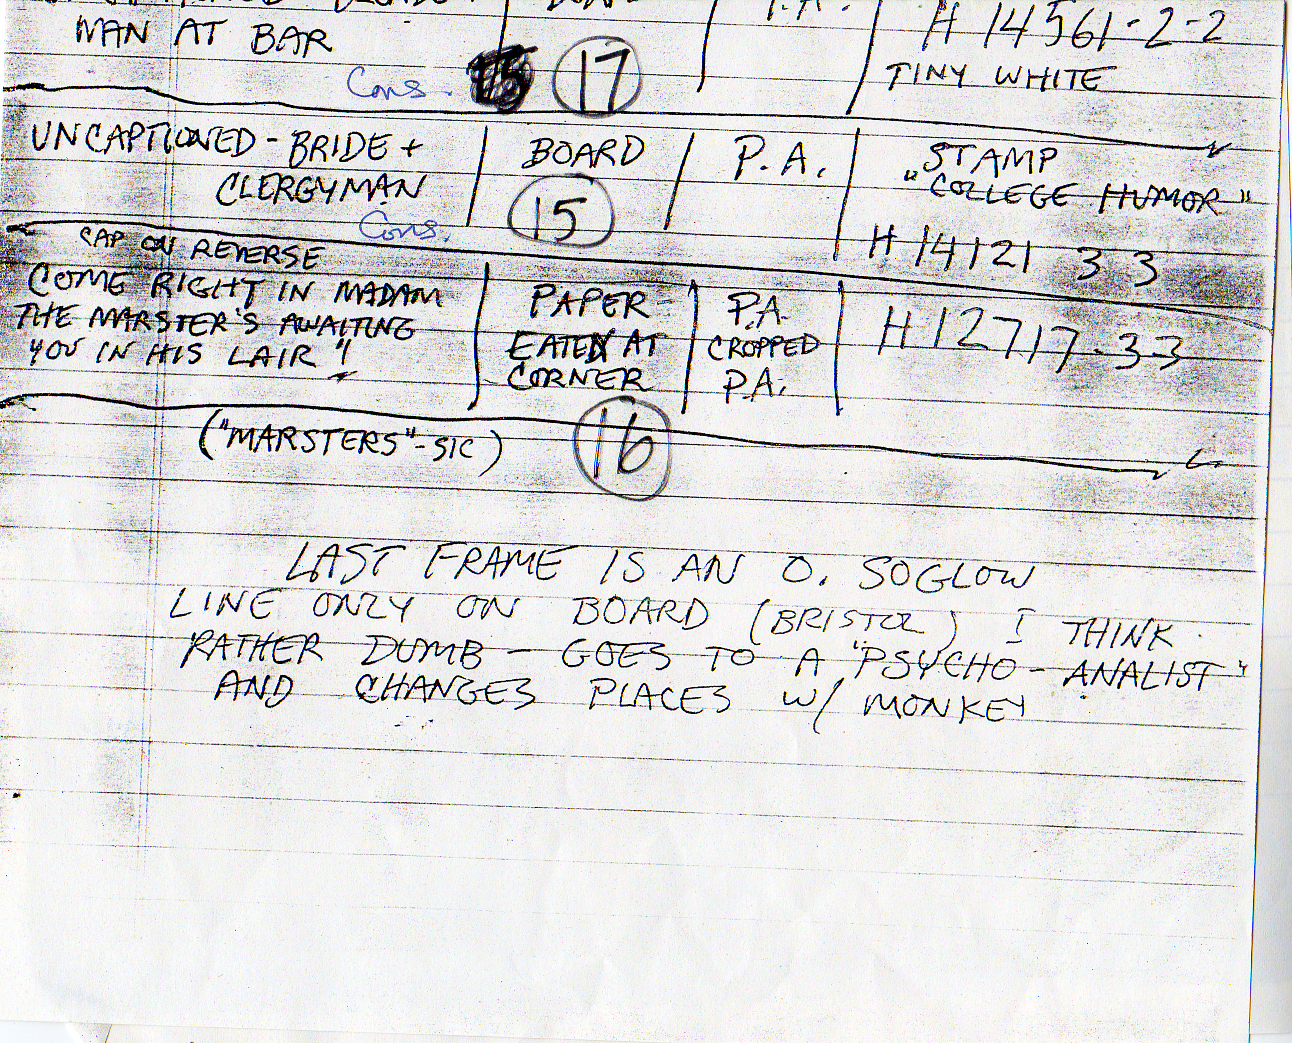 MAN AT BAR
Cons.
17
P.A.
H 14561-2-2
TINY WHITE
UNCAPTIONED - BRIDE +
CLERGYMAN
Cons.
BOARD
15
P.A.
STAMP
"COLLEGE HUMOR"
H 14121 3 3
CAP ON REVERSE
COME RIGHT IN MADAM
THE MARSTER'S AWAITING
YOU IN HIS LAIR"
PAPER
EATEN AT
CORNER
P.A.
CROPPED
P.A.
H 12717-33
("MARSTERS"-SIC)
16
LAST FRAME IS AN O. SOGLOW
LINE ONLY ON BOARD (BRISTOL) I THINK
RATHER DUMB - GOES TO A "PSYCHO-ANALIST"
AND CHANGES PLACES W/ MONKEY